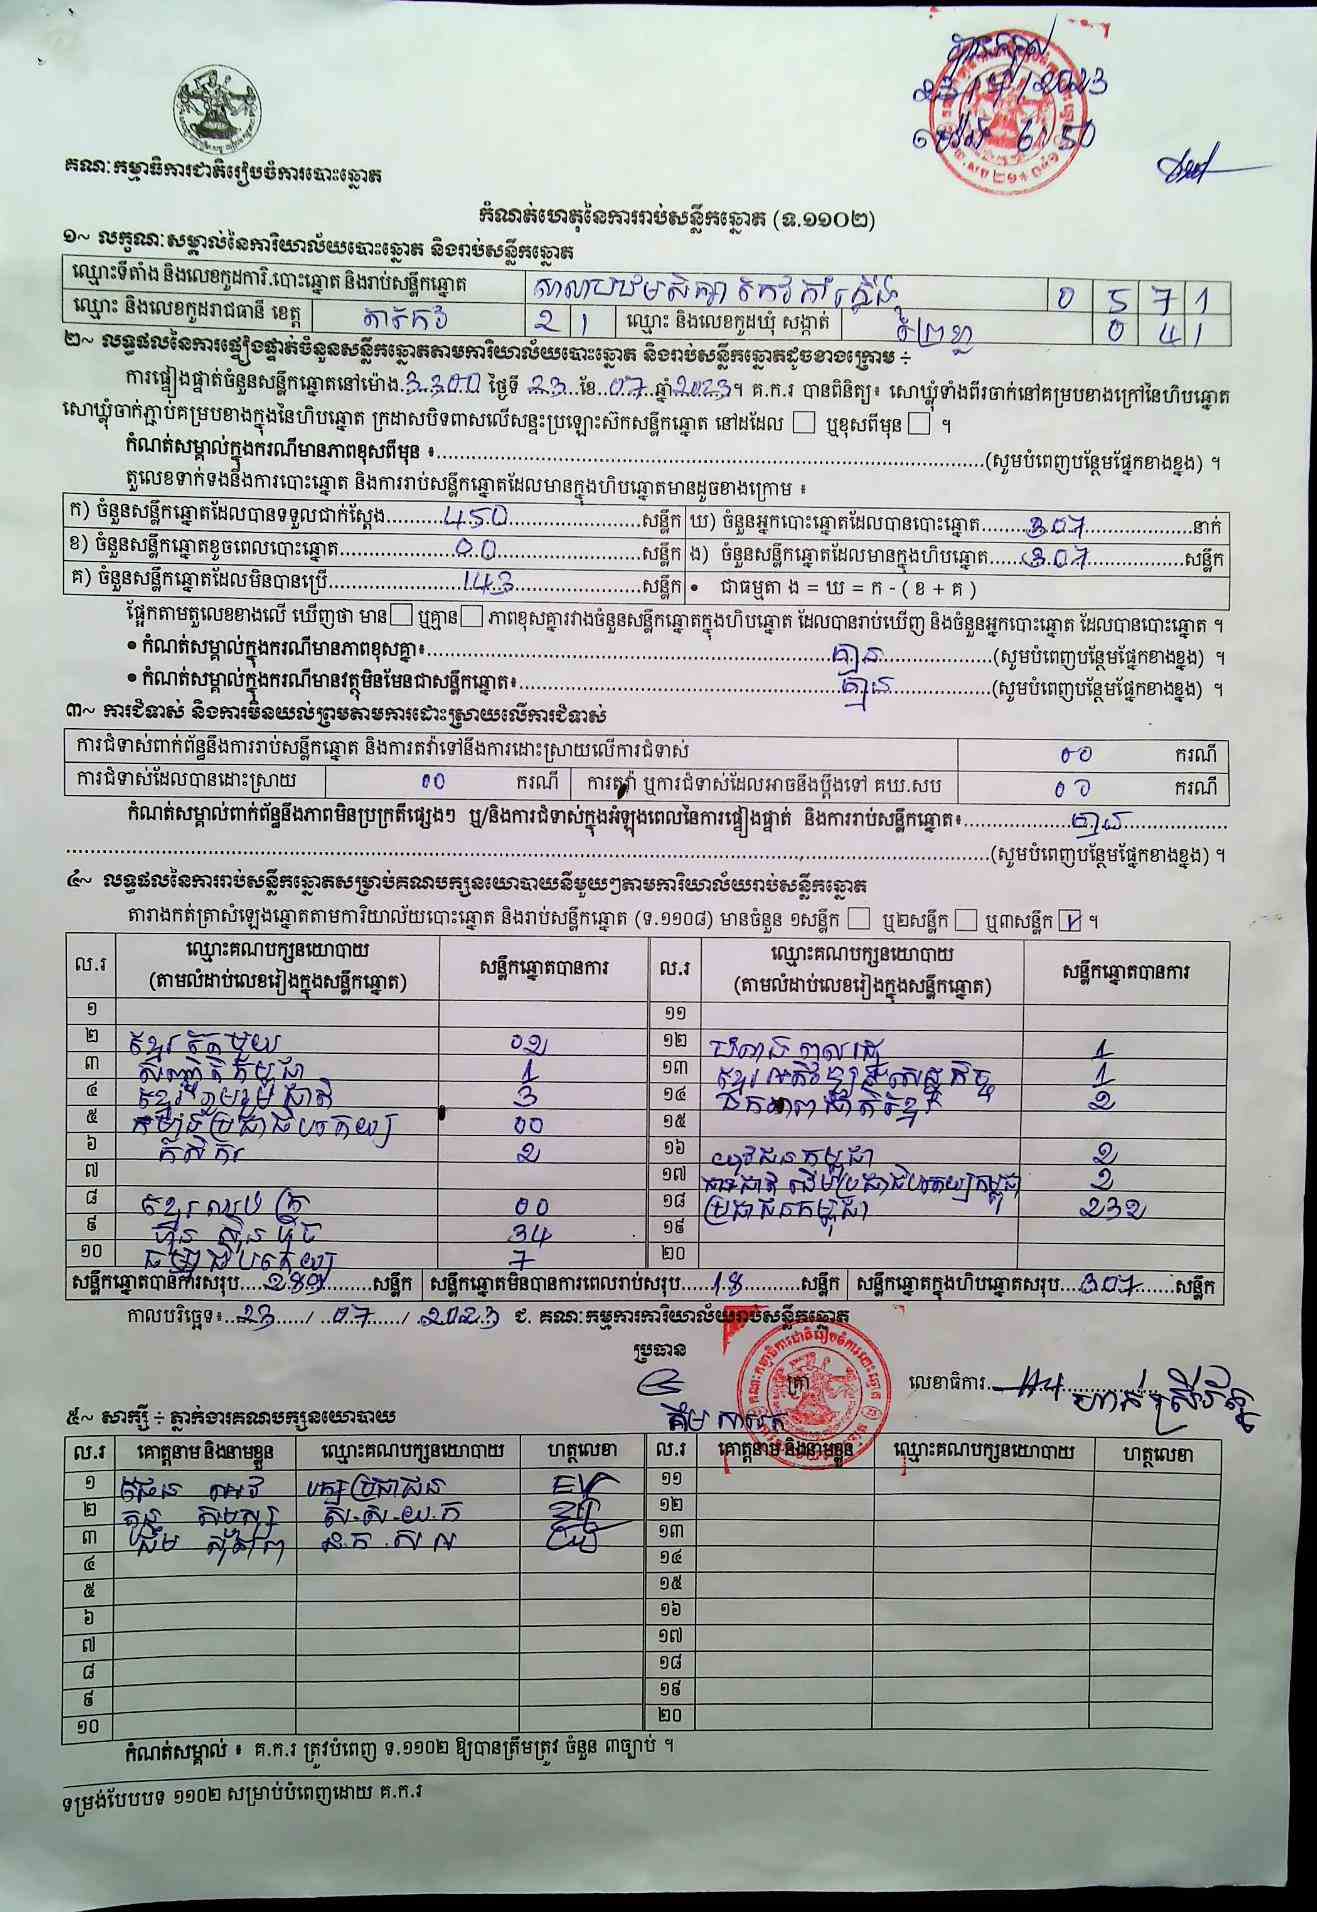 បានចូល
23/7/2023
ម៉ោង 6:50
គណៈកម្មាធិការជាតិរៀបចំការបោះឆ្នោត
កំណត់ហេតុនៃការរាប់សន្លឹកឆ្នោត (ទ.១១០២)
១~ លក្ខណៈសម្គាល់នៃការិយាល័យបោះឆ្នោត និងរាប់សន្លឹកឆ្នោត
ឈ្មោះទីតាំង និងលេខកូដការិ.បោះឆ្នោត និងរាប់សន្លឹកឆ្នោត សាលាបឋមសិក្សា 0 5 7 1
ឈ្មោះ និងលេខកូដរាជធានី ខេត្ត តាកែវ 2 1 ឈ្មោះ និងលេខកូដឃុំ សង្កាត់ ព្រៃខ្លា 0 4 1
២~ លទ្ធផលនៃការផ្ទៀងផ្ទាត់ចំនួនសន្លឹកឆ្នោតតាមការិយាល័យបោះឆ្នោត និងរាប់សន្លឹកឆ្នោតដូចខាងក្រោម ÷
ការផ្ទៀងផ្ទាត់ចំនួនសន្លឹកឆ្នោតនៅម៉ោង.3.300 ថ្ងៃទី 23 ខែ 07 ឆ្នាំ2023។ គ.ក.រ បានពិនិត្យ៖ សោឃ្លុំទាំងពីរចាក់នៅគម្របខាងក្រៅនៃហិបឆ្នោត
សោឃ្លុំចាក់ភ្ជាប់គម្របខាងក្នុងនៃហិបឆ្នោត ក្រដាសបិទពាសលើសន្ទះប្រឡោះស៊កសន្លឹកឆ្នោត នៅដដែល □ ឬខុសពីមុន □ ។
កំណត់សម្គាល់ក្នុងករណីមានភាពខុសពីមុន ៖ (សូមបំពេញបន្ថែមផ្នែកខាងខ្នង) ។
តួលេខទាក់ទងនឹងការបោះឆ្នោត និងការរាប់សន្លឹកឆ្នោតដែលមានក្នុងហិបឆ្នោតមានដូចខាងក្រោម ៖
ក) ចំនួនសន្លឹកឆ្នោតដែលបានទទួលជាក់ស្តែង 450 សន្លឹក ឃ) ចំនួនអ្នកបោះឆ្នោតដែលបានបោះឆ្នោត 307 នាក់
ខ) ចំនួនសន្លឹកឆ្នោតខូចពេលបោះឆ្នោត 00 សន្លឹក ង) ចំនួនសន្លឹកឆ្នោតដែលមានក្នុងហិបឆ្នោត 307 សន្លឹក
គ) ចំនួនសន្លឹកឆ្នោតដែលមិនបានប្រើ 143 សន្លឹក • ជាធម្មតា ង = ឃ = ក - ( ខ + គ )
ផ្អែកតាមតួលេខខាងលើ ឃើញថា មាន □ ឬគ្មាន □ ភាពខុសគ្នារវាងចំនួនសន្លឹកឆ្នោតក្នុងហិបឆ្នោត ដែលបានរាប់ឃើញ និងចំនួនអ្នកបោះឆ្នោត ដែលបានបោះឆ្នោត ។
• កំណត់សម្គាល់ក្នុងករណីមានភាពខុសគ្នា៖ គ្មាន (សូមបំពេញបន្ថែមផ្នែកខាងខ្នង) ។
• កំណត់សម្គាល់ក្នុងករណីមានវត្ថុមិនមែនជាសន្លឹកឆ្នោត៖ គ្មាន (សូមបំពេញបន្ថែមផ្នែកខាងខ្នង) ។
៣~ ការជំទាស់ និងការមិនយល់ព្រមតាមការដោះស្រាយលើការជំទាស់
ការជំទាស់ពាក់ព័ន្ធនឹងការរាប់សន្លឹកឆ្នោត និងការតវ៉ាទៅនឹងការដោះស្រាយលើការជំទាស់ 00 ករណី
ការជំទាស់ដែលបានដោះស្រាយ 00 ករណី ការតវ៉ា ឬការជំទាស់ដែលអាចនឹងប្តឹងទៅ គឃ.សប 00 ករណី
កំណត់សម្គាល់ពាក់ព័ន្ធនឹងភាពមិនប្រក្រតីផ្សេងៗ ឬ/និងការជំទាស់ក្នុងអំឡុងពេលនៃការផ្ទៀងផ្ទាត់ និងការរាប់សន្លឹកឆ្នោត៖ គ្មាន
(សូមបំពេញបន្ថែមផ្នែកខាងខ្នង) ។
៤~ លទ្ធផលនៃការរាប់សន្លឹកឆ្នោតសម្រាប់គណបក្សនយោបាយនីមួយៗតាមការិយាល័យរាប់សន្លឹកឆ្នោត
តារាងកត់ត្រាសំឡេងឆ្នោតតាមការិយាល័យបោះឆ្នោត និងរាប់សន្លឹកឆ្នោត (ទ.១១០៨) មានចំនួន ១សន្លឹក □ ឬ២សន្លឹក □ ឬ៣សន្លឹក ☑ ។
ល.រ ឈ្មោះគណបក្សនយោបាយ (តាមលំដាប់លេខរៀងក្នុងសន្លឹកឆ្នោត) សន្លឹកឆ្នោតបានការ ល.រ ឈ្មោះគណបក្សនយោបាយ (តាមលំដាប់លេខរៀងក្នុងសន្លឹកឆ្នោត) សន្លឹកឆ្នោតបានការ
១ ១១
២ ខ្មែរតែមួយ 02 ១២ 1
៣ សញ្ជាតិកម្ពុជា 1 ១៣ ខ្មែរអភិវឌ្ឍន៍សេដ្ឋកិច្ច 1
៤ ខ្មែររួបរួមជាតិ 3 ១៤ ឯកភាពជាតិខ្មែរ 2
៥ កម្លាំងប្រជាធិបតេយ្យ 00 ១៥
៦ កសិករ 2 ១៦ យុវជនកម្ពុជា 2
៧ ១៧ 2
៨ ខ្មែរឈប់ក្រ 00 ១៨ ប្រជាជនកម្ពុជា 232
៩ ហ៊្វុនស៊ិនប៉ិច 34 ១៩
១០ ធម្មាធិបតេយ្យ 7 ២០
សន្លឹកឆ្នោតបានការសរុប 289 សន្លឹក សន្លឹកឆ្នោតមិនបានការពេលរាប់សរុប 18 សន្លឹក សន្លឹកឆ្នោតក្នុងហិបឆ្នោតសរុប 307 សន្លឹក
កាលបរិច្ឆេទ៖ 23 / 07 / 2023 ជ. គណៈកម្មការការិយាល័យរាប់សន្លឹកឆ្នោត
ប្រធាន
ត្រា លេខាធិការ
៥~ សាក្សី ÷ ភ្នាក់ងារគណបក្សនយោបាយ
ល.រ គោត្តនាម និងនាមខ្លួន ឈ្មោះគណបក្សនយោបាយ ហត្ថលេខា ល.រ គោត្តនាម និងនាមខ្លួន ឈ្មោះគណបក្សនយោបាយ ហត្ថលេខា
១ បក្សប្រជាជន ១១
២ ស.ស.យ.ក ១២
៣ ១៣
៤ ១៤
៥ ១៥
៦ ១៦
៧ ១៧
៨ ១៨
៩ ១៩
១០ ២០
កំណត់សម្គាល់ ៖ គ.ក.រ ត្រូវបំពេញ ទ.១១០២ ឱ្យបានត្រឹមត្រូវ ចំនួន ៣ច្បាប់ ។
ទម្រង់បែបបទ ១១០២ សម្រាប់បំពេញដោយ គ.ក.រ